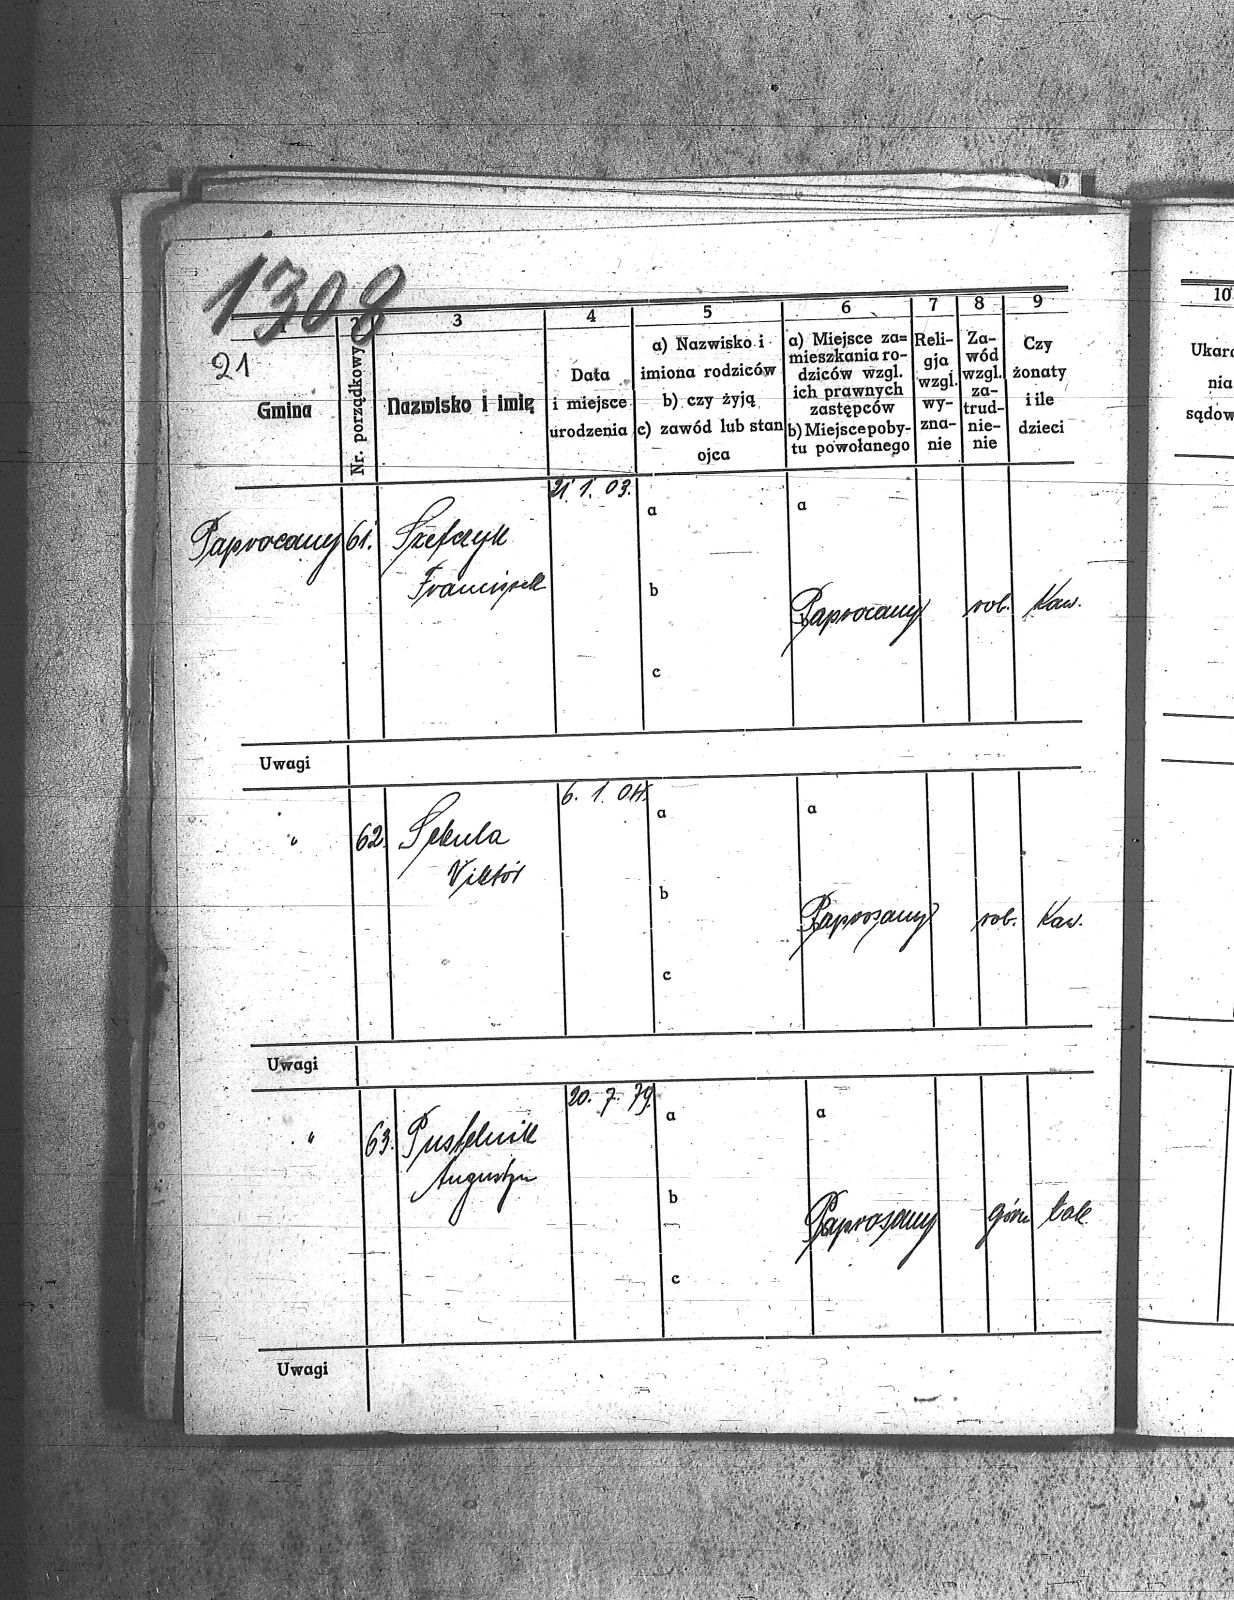 1308
21
1 2 3 4 5 6 7 8 9
Gmina
Nr. porządkowy
Nazwisko i imię
Data
i miejsce
urodzenia
a) Nazwisko i
imiona rodziców
b) czy żyją
c) zawód lub stan
ojca
a) Miejsce za=
mieszkania ro-
dziców wzgl.
ich prawnych
zastępców
b) Miejsce poby-
tu powołanego
Reli-
gja
wzgl.
wy-
zna-
nie
Za-
wód
wzgl.
za-
trud-
nie-
nie
Czy
żonaty
i ile
dzieci
10
21. 1. 03.
Paprocany 61. Szefczyk a a
Franciszek b
Paprocany rob. Kaw.
c
Uwagi
6. 1. 04.
" 62. Sekula a a
Viktór
b
Paprozany rob. Kaw.
c
Uwagi
20. 7. 79.
" 63. Pustelnik a a
Augustyn
b
Paprozany górn
c
Uwagi